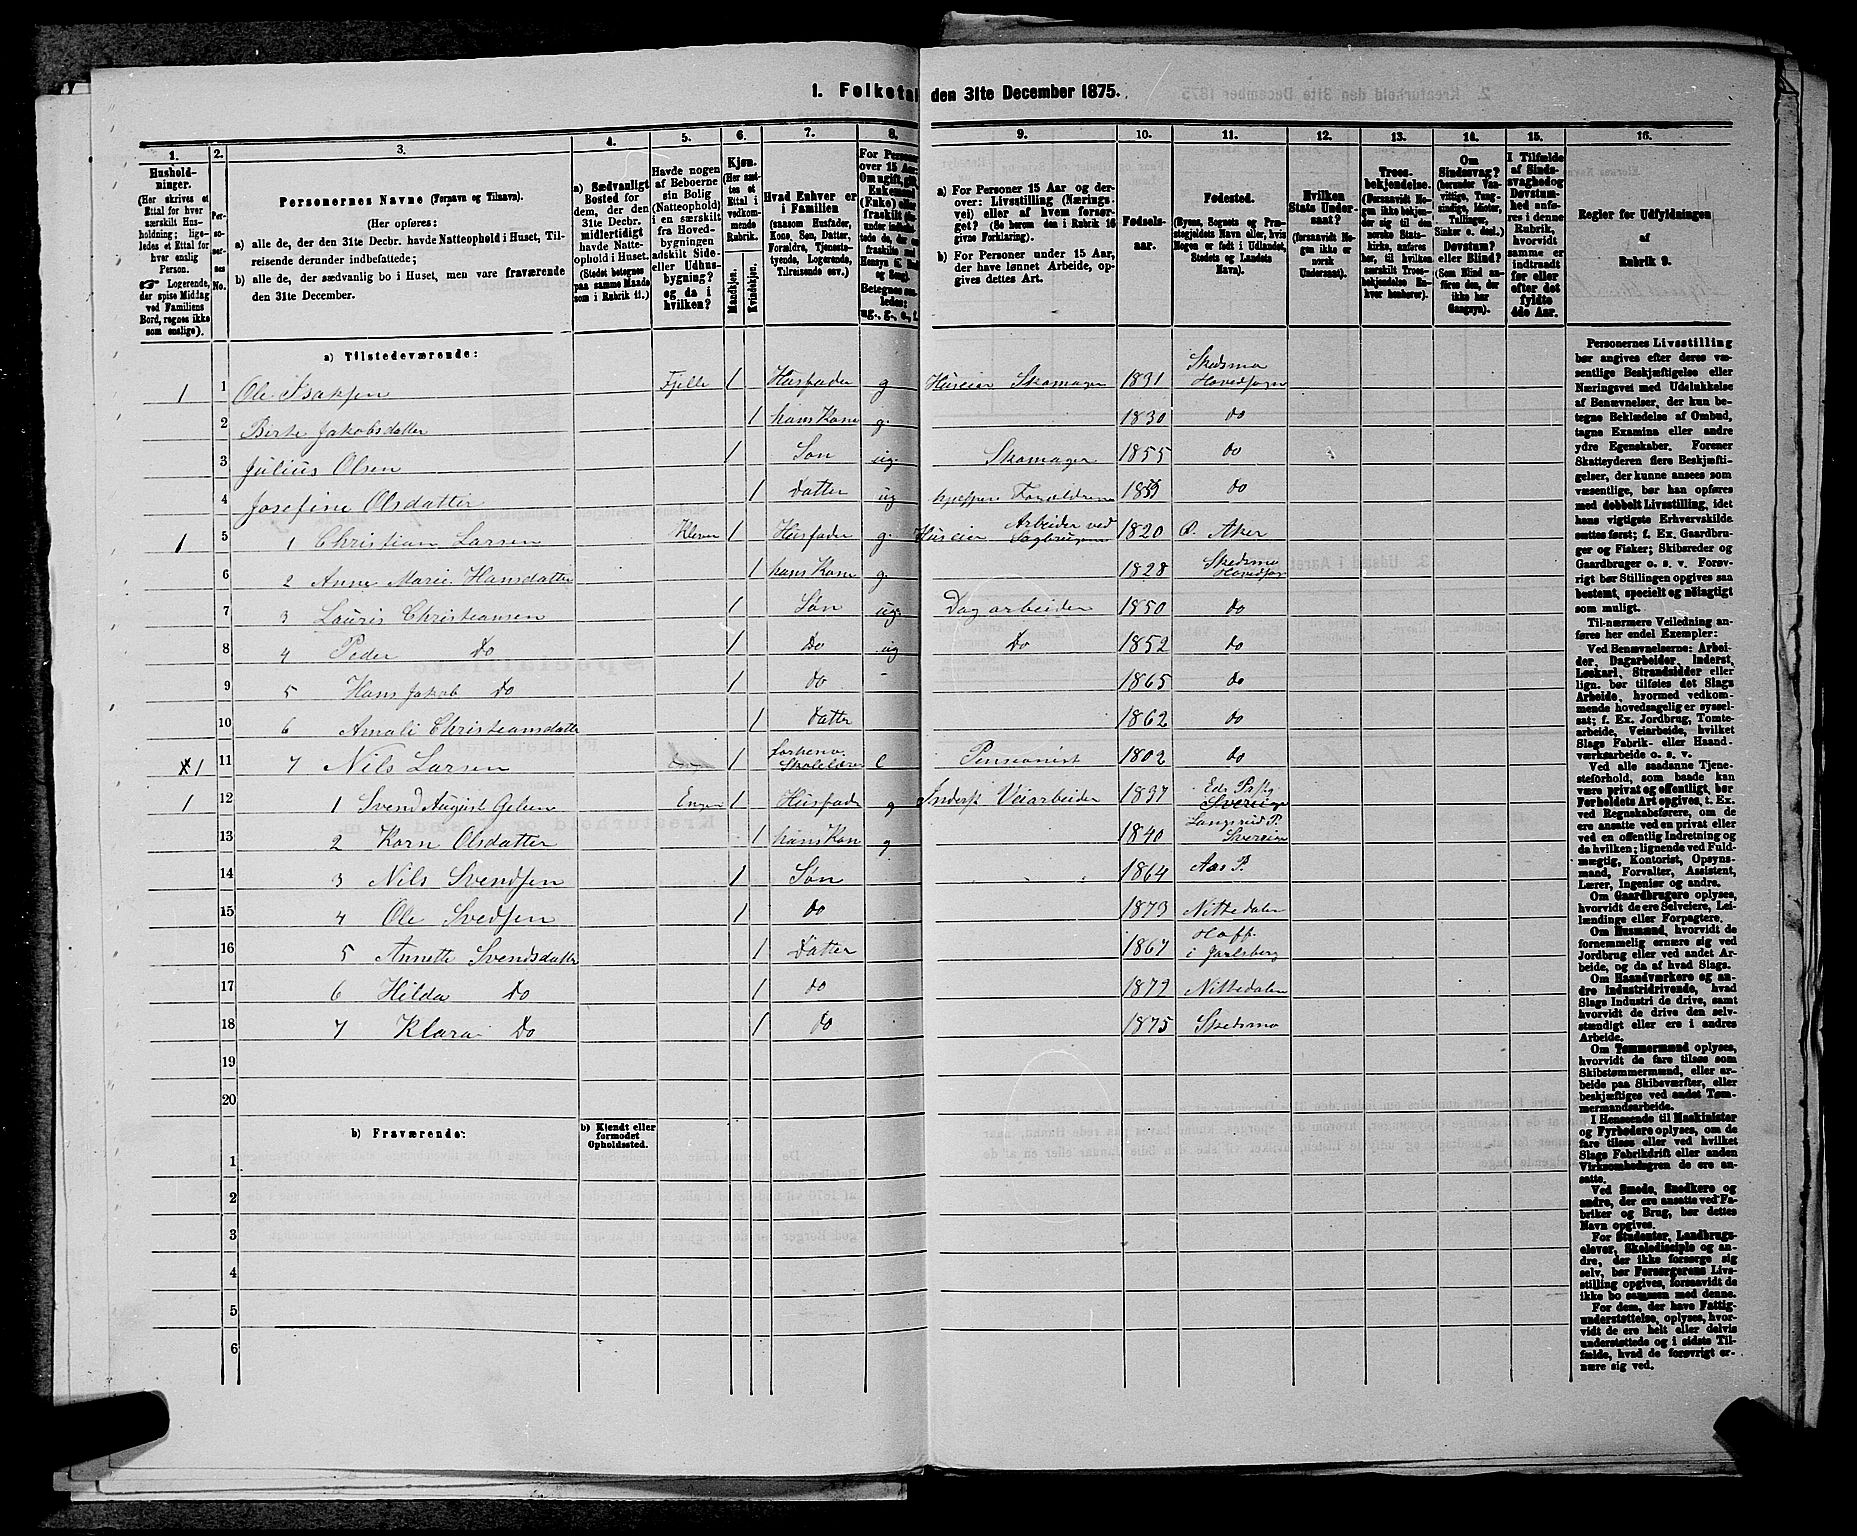 1. Folketal den 31te December 1875.
1. 2. 3. 4. 5. 6. 7. 8. 9. 10. 11. 12. 13. 14. 15. 16.
Husholdninger.
(Her skrives et Ettal for hver særskilt Husholdning; ligeledes et Ettal for hver enslig Person.
Logerende, der spise Middag ved Familiens Bord, regnes ikke som enslige).
Personernes No.
Personernes Navne (Fornavn og Tilnavn).
(Her opføres:
a) alle de, der den 31te Decbr. havde Natteophold i Huset, Tilreisende derunder indbefattede;
b) alle de, der sædvanlig bo i Huset, men vare fraværende den 31te December.
a) Sædvanligt Bosted for dem, der den 31te Decbr. midlertidigt havde Natteophold i Huset.
(Stedet betegnes paa samme Maade som i Rubrik 11.)
Havde nogen af Beboerne sin Bolig (Natteophold) i en særskilt fra Hovedbygningen adskilt Side- eller Udhusbygning? og da i hvilken?
Kjøn. (Her sættes et Ettal i vedkommende Rubrik.
Mandkjøn. Kvindekjøn.
Hvad Enhver er i Familien
(saasom Husfader, Kone, Søn, Datter, Forældre, Tjenestetyende, Logerende, Tilreisende osv.)
For Personer over 15 Aar: Om ugift, gift,
a) For Personer 15 Aar og derover: Livsstilling (Næringsvei) eller af hvem forsørget. (Se herom den i Rubrik 16 givne Forklaring).
b) For Personer under 15 Aar, der have lønnet Arbeide, opgives dettes Art.
Fødselsaar.
Fødested.
(Byens, Sognets og Præstegjeldets Navn eller, hvis Nogen er født i Udlandet, Stedets og Landets Navn).
Hvilken Stats Undersaat?
(forsaavidt Nogen ikke er norsk Undersaat).
Troesbekjendelse.
(Forsaavidt Nogen ikke bekjender sig til den norske Statskirke, anføres her, til hvilken særskilt Troesbekjendelse Enhver henhører).
Om Sindssvag?
(herunder Vanvittige, Tungsindige, Idioter, Tullinger, Sinker o. desl.)
Døvstum? eller Blind?
(Som Blind anføres den, der ikke har Gangsyn).
I Tilfælde af Sindssvaghed og Døvstumhed anføres i denne Rubrik, hvorvidt samme er indtraadt før eller efter det fyldte 4de Aar.
Regler for Udfyldningen af Rubrik 9.
a) Tilstedeværende:
1 1 Ole Isaksen Fjelle 1 Husfader g Huseier Skomager 1831 Skedsmo Hovedsogn
2 Berte Jakobsdatter 1 hans Kone g. 1830 do
3 Julius Olsen 1 Søn ug. Skomager 1855 do
4 Josefine Olsdatter 1 Datter ug Forældrene do
1 5 1 Christian Larsen 1 Husfader g. Huseier Arbeider ved Sagbruget 1820 P. Aker
6 2 Anne Marie Hansdatter 1 hans Kone g. 1828 Skedsmo Hovedsogn
7 3 Lauris Christiansen 1 Søn ug. Dagarbeider 1850 do
8 4 Peder Do 1 Do ug Do 1852 do
9 5 Hans Jakob Do 1 do - 1865 do
10 6 Amali Christiansdatter 1 Datter 1862 do
1 11 7 Nils Larsen 1 forhenv. Skolelærer e Pensionist 1802 do
1 12 1 Svend August Enger 1 Husfader g Inderst Veiarbeider 1837 Sverige
13 2 Karn Olsdatter 1 hans Kone g 1840 Langerud P. Sverige
14 3 Nils Svendsen 1 Søn 1864 Aas P.
15 4 Ole Svedsen 1 do 1873 Nittedalen
16 5 Annette Svendsdatter 1 Datter 1867 Hoff i Jarlsberg
17 6 Hilda Do 1 do 1872 Nittedalen
18 7 Klara Do 1 do 1875 Skedsmo
19
20
b) Fraværende: b) Kjendt eller formodet Opholdssted.
1
2
3
4
5
6
Personernes Livsstilling
bør angives efter deres væ-
sentlige Beskjæftigelse eller
Næringsvei med Udelukkelse
af Benævnelser, der kun be-
tegne Beklædelse af Ombud,
tagne Examina eller andre
ydre Egenskaber. Forener
Skatteyderen flere Beskjæfti-
gelser, der kunne ansees som
væsentlige, bør han opføres
med dobbelt Livsstilling, idet
hans vigtigste Erhvervskilde
sættes først; f. Ex. Gaardbru-
ger og Fisker; Skibsreder og
Gaardbruger o. s. v. Forøv-
rigt bør Stillingen opgives saa
bestemt, specielt og nøiagtigt
som muligt.
Til nærmere Veiledning an-
føres her endel Exempler:
Ved Benævnelserne: Arbei-
der, Dagarbeider, Inderst,
Løskarl, Strandsidder eller
lign. bør tilføies det Slags
Arbeide, hvormed vedkom-
mende hovedsagelig er syssel-
sat; f. Ex. Jordbrug, Tomte-
arbeide, Veiarbeide, hvilket
Slags Fabrik- eller Haand-
værksarbeide o. s. v.
Ved alle saadanne Tjene-
steforhold, som baade kan
være privat og offentlig, bør
Forholdets Art opgives, t. Ex.
ved Regnskabsførere, om de
ere ansatte ved en privat eller
ved en offentlig Indretning og
da hvilken; lignende ved Fuld-
mægtig, Kontorist, Opsyns-
mand, Forvalter, Assistent,
Lærer, Ingeniør og andre.
Om Gaardbrugere oplyses,
hvorvidt de ere Selveiere, Lei-
lændinge eller Forpagtere.
Om Husmænd, hvorvidt de
fornemmelig ernære sig ved
Jordbrug eller ved andet Ar-
beide, og da af hvad Slags.
Om Haandværkere og an-
dre Industridrivende, hvad
Slags Industri de drive, samt
hvorvidt de drive den selv-
stændigt eller ere i andres
Arbeide.
Om Tømmermænd oplyses,
hvorvidt de fare tilsøs som
Skibstømmermænd, eller ar-
beide paa Skibsværfter, eller
beskjæftiges ved andet Tøm-
mermandsarbeide.
I Henseende til Maskinister
og Fyrbødere oplyses, om de
fare tilsøs eller ved hvilket
Slags Fabrikdrift eller anden
Virksomhed de ere an-
satte.
Ved Smede, Snedkere og
andre, der ere ansatte ved Fa-
briker og Brug, bør dettes
Navn opgives.
For Studenter, Landbrugs-
elever, Skoledisciple og an-
dre, der ikke forsørge sig
selv, bør Forsørgerens Livs-
stilling opgives, forsaavidt de
ikke bo sammen med denne.
For dem, der have Fattig-
understøttelse, oplyses, hvor-
vidt de ere helt eller delvis
understøttede og i sidste Til-
fælde, hvad de forøvrigt er-
nære sig ved.